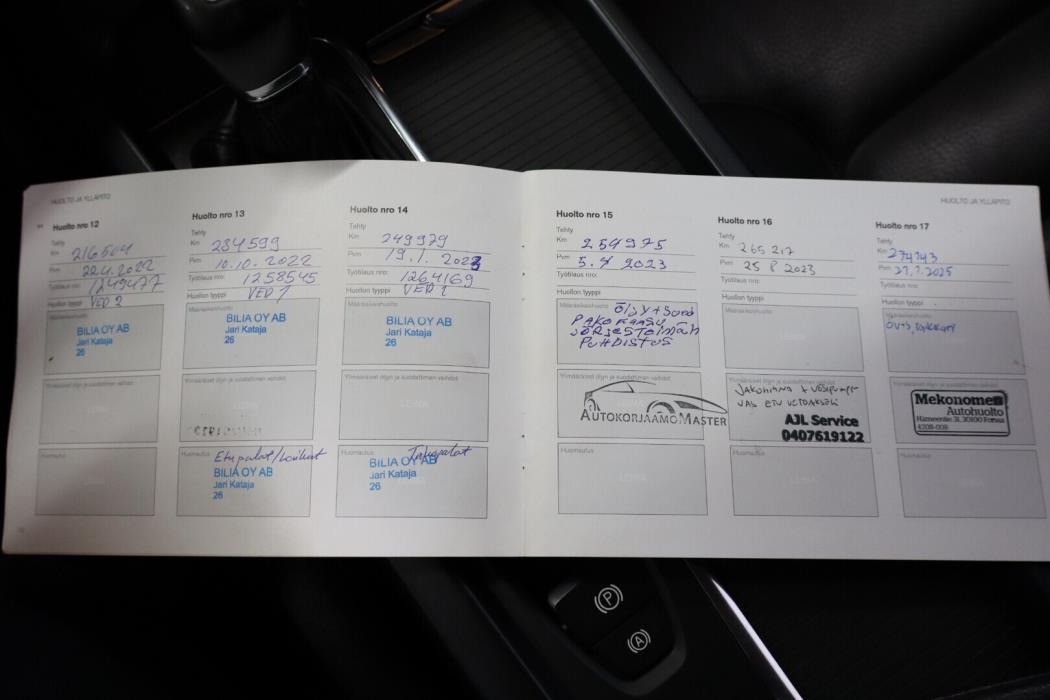 HUOLTO JA YLLÄPITO
Huolto nro 12
Tehty
Km 216504
Pvm 22.4.2022
Työtilaus nro: 1249477
Huollon tyyppi VED 2
Määräaikaishuolto
BILIA OY AB
Jari Kataja
26
Ylimääräiset öljyn ja suodattimen vaihdot
Huomautus
Huolto nro 13
Tehty
Km 234599
Pvm 10.10.2022
Työtilaus nro: 1258545
Huollon tyyppi VED 1
Määräaikaishuolto
BILIA OY AB
Jari Kataja
26
Ylimääräiset öljyn ja suodattimen vaihdot
Huomautus Etupalat/
BILIA OY AB
Jari Kataja
26
Huolto nro 14
Tehty
Km 249979
Pvm 19.1.2023
Työtilaus nro: 1264169
Huollon tyyppi VED 1
Määräaikaishuolto
BILIA OY AB
Jari Kataja
26
Ylimääräiset öljyn ja suodattimen vaihdot
Huomautus Takapalat
BILIA OY AB
Jari Kataja
26
HUOLTO JA YLLÄPITO
Huolto nro 15
Tehty
Km 254975
Pvm 5.7 2023
Työtilaus nro:
Huollon tyyppi
Määräaikaishuolto
ÖLJY +
PAKOKAASU
JÄRJESTELMÄN
PUHDISTUS
Ylimääräiset öljyn ja suodattimen vaihdot
AUTOKORJAAMOMASTER
Huomautus
Huolto nro 16
Tehty
Km 265 217
Pvm 25 8 2023
Työtilaus nro:
Huollon tyyppi
Määräaikaishuolto
Ylimääräiset öljyn ja suodattimen vaihdot
JAKOHIHNA + VESIPUMPPU
VAS ETU VETOAKSELI
AJL Service
0407619122
Huomautus
Huolto nro 17
Tehty
Km 274743
Pvm 27.7.2025
Työtilaus nro:
Huollon tyyppi
Määräaikaishuolto
Ylimääräiset öljyn ja suodattimen vaihdot
Mekonomen
Autohuolto
Hämeentie 31, 30100 Forssa
4208-008
Huomautus
P
A